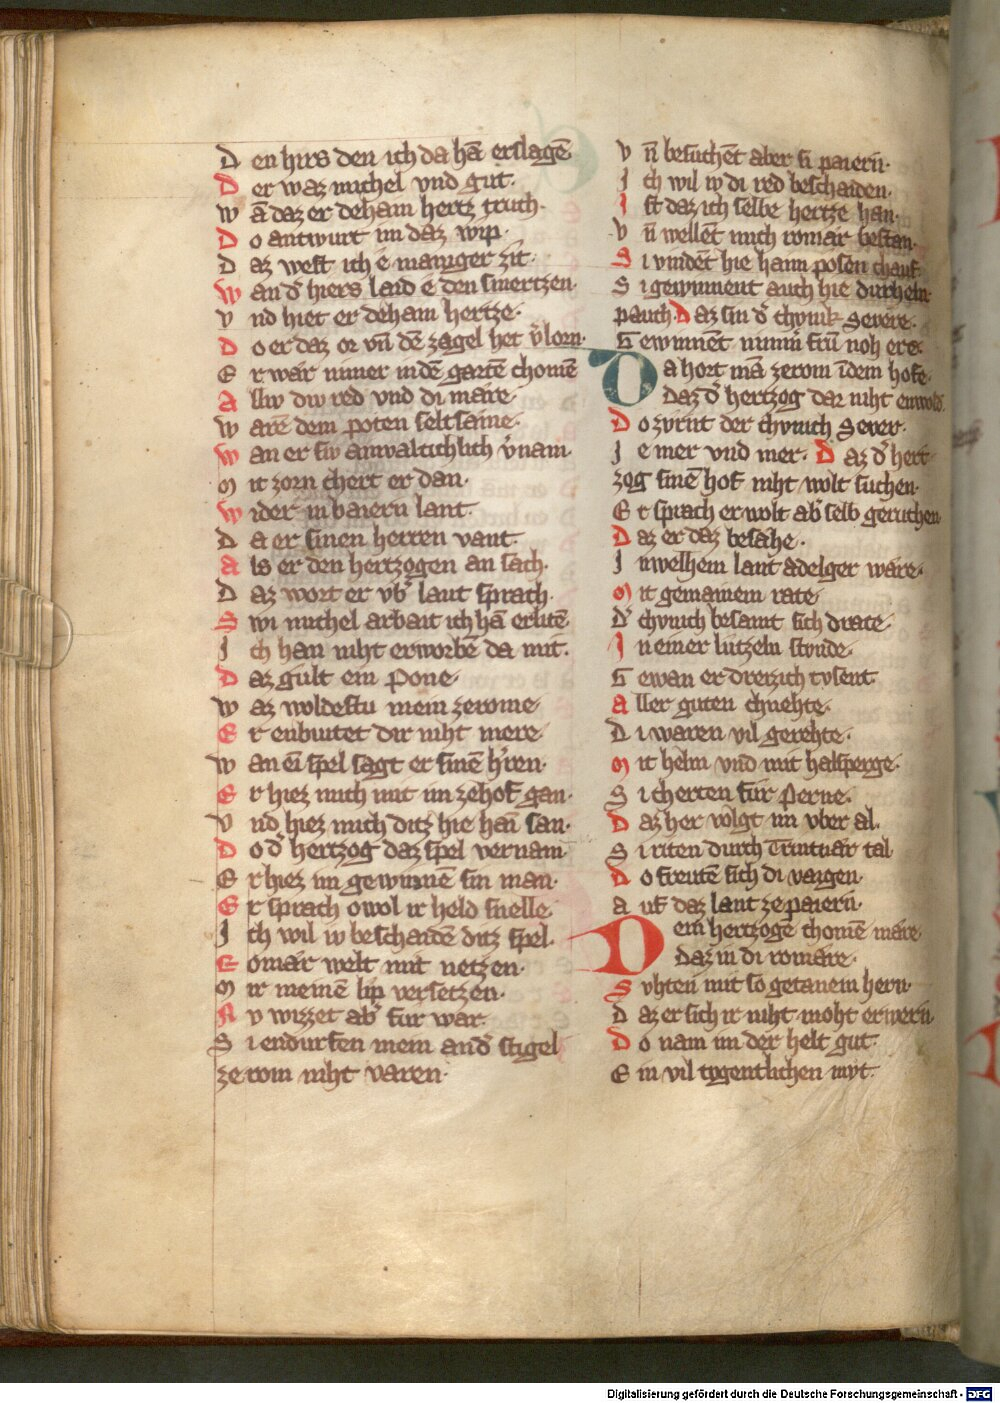 D en hirs den ich da hā erslagē
D er waz michel vnd gut.
w ā daz er deham hertz truch.
D o antwurt im daz wip.
D az west ich e maniger zit.
w an d͛ hiers laid e den smertzen.
v nd hiet er deham hertze.
D o er daz or vn̄ dē zagel het v͛lorn.
E r wār nimer in dē gartē chomē
A llw diw red vnd di māre.
w arē dem poten seltsaine.
w an er siv anwaltichlich v͛nam.
M it zorn chert er dan.
w ider in baiern lant.
D a er sinen herren vant
A ls er den hertzogen an sach.
D az wort er vb͛ laut sprach.
S wi michel arbait ich hā erlitē
J ch han niht erworbē da mit.
D az gult ein Pone.
w az woldestu mein ze rome
E r enbiutet dir niht mere.
w an ei̅ spel sagt er sinē h͛ren.
E r hiez mich mit im ze hof gan.
v nd hiez mich ditz hie han̄ lan.
D o d͛ hertzog daz spel vernam.
E r hiez im gewinnē sin man.
E r sprach owol ir held snelle
J ch wil iv beschaidē ditz spel.
R omār welt mit netzen.
M ir meinē lip versetzen.
N v wizzet ab͛ fur war.
S i endurfen mein and͛ stigel
ze rom niht varen.
v n̄ besuchēt aber si paiern.
J ch wil iv di red beschaiden.
J st daz ich selbe hertze han.
v n̄ wellēt mich romār bestan.
S i vindēt hie haim pôsen chauf.
S i gewinnent auch hie durcheln
pauch. D az sin d͛ chvnik Severe.
G ewinnēt nimm͛ frū noh ere.
D a hort mā ze rom in dem hofe.
Daz d͛ hertzog dar niht enwold.
D o zvrnt der chvnich Sever.
J e mer vnd mer. D az d͛ hert
zog sinē hof niht wolt suchen.
E r sprach er wolt ab͛ selb geruchen
D az er daz besāhe.
J n welhem lant adelger wāre.
M it gemainem rate
D͛ chvnich besamt sich drate.
J n einer lutzeln stvnde.
G ewan er dreizich tvsent
A ller guten chnehte.
D i waren vil gerehte.
M it helm vnd mit halsperge.
S i cherten fur Perne.
D az her volgt im vber al.
S i riten durch Trintuār tal
D o freutē sich di vaigen.
A uf daz lant ze paiern.
D em hertzogē chomē māre
Daz in di romāre.
S vhten mit so getanem hern.
D az er sich ir niht moht erwern.
D o nam im der helt gut.
E in vil tvgentlichen mvt.
Digitalisierung gefördert durch die Deutsche Forschungsgemeinschaft - DFG